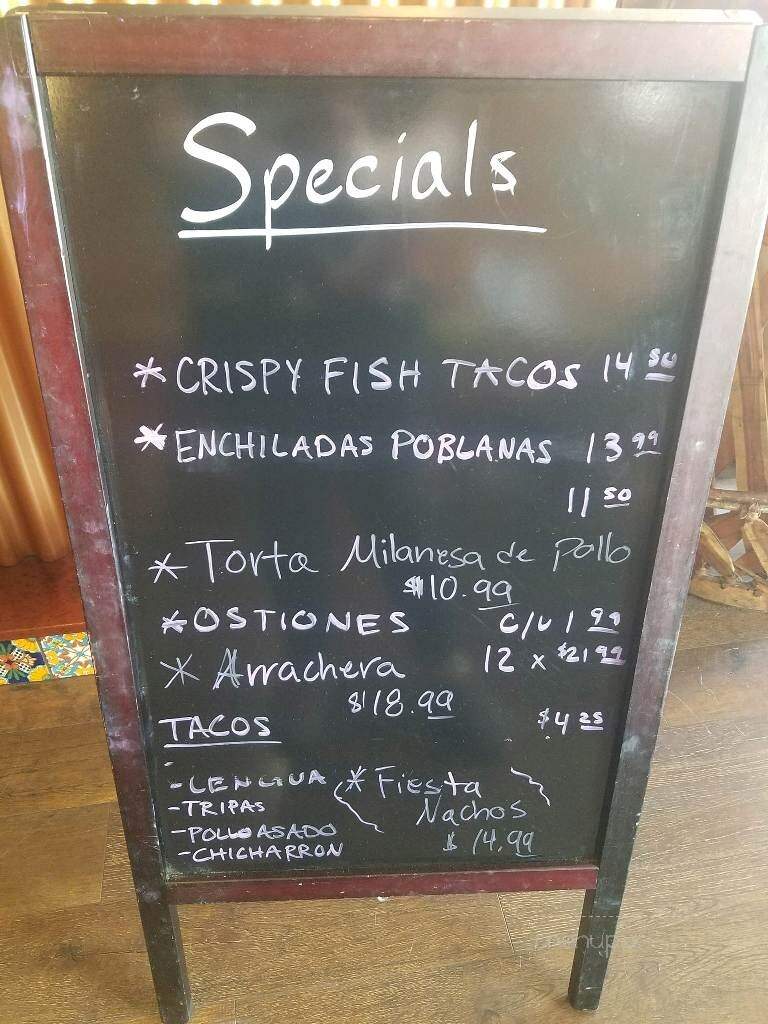 Specials
* CRISPY FISH TACOS 14 50
* ENCHILADAS POBLANAS 13 99
11 50
* Torta Milanesa de Pollo
$10.99
* OSTIONES c/u 1 99
* Arrachera 12 x $21 99
$18.99
TACOS $4 25
- LENGUA * Fiesta
- TRIPAS Nachos
- POLLO ASADO $ 14.99
- CHICHARRON